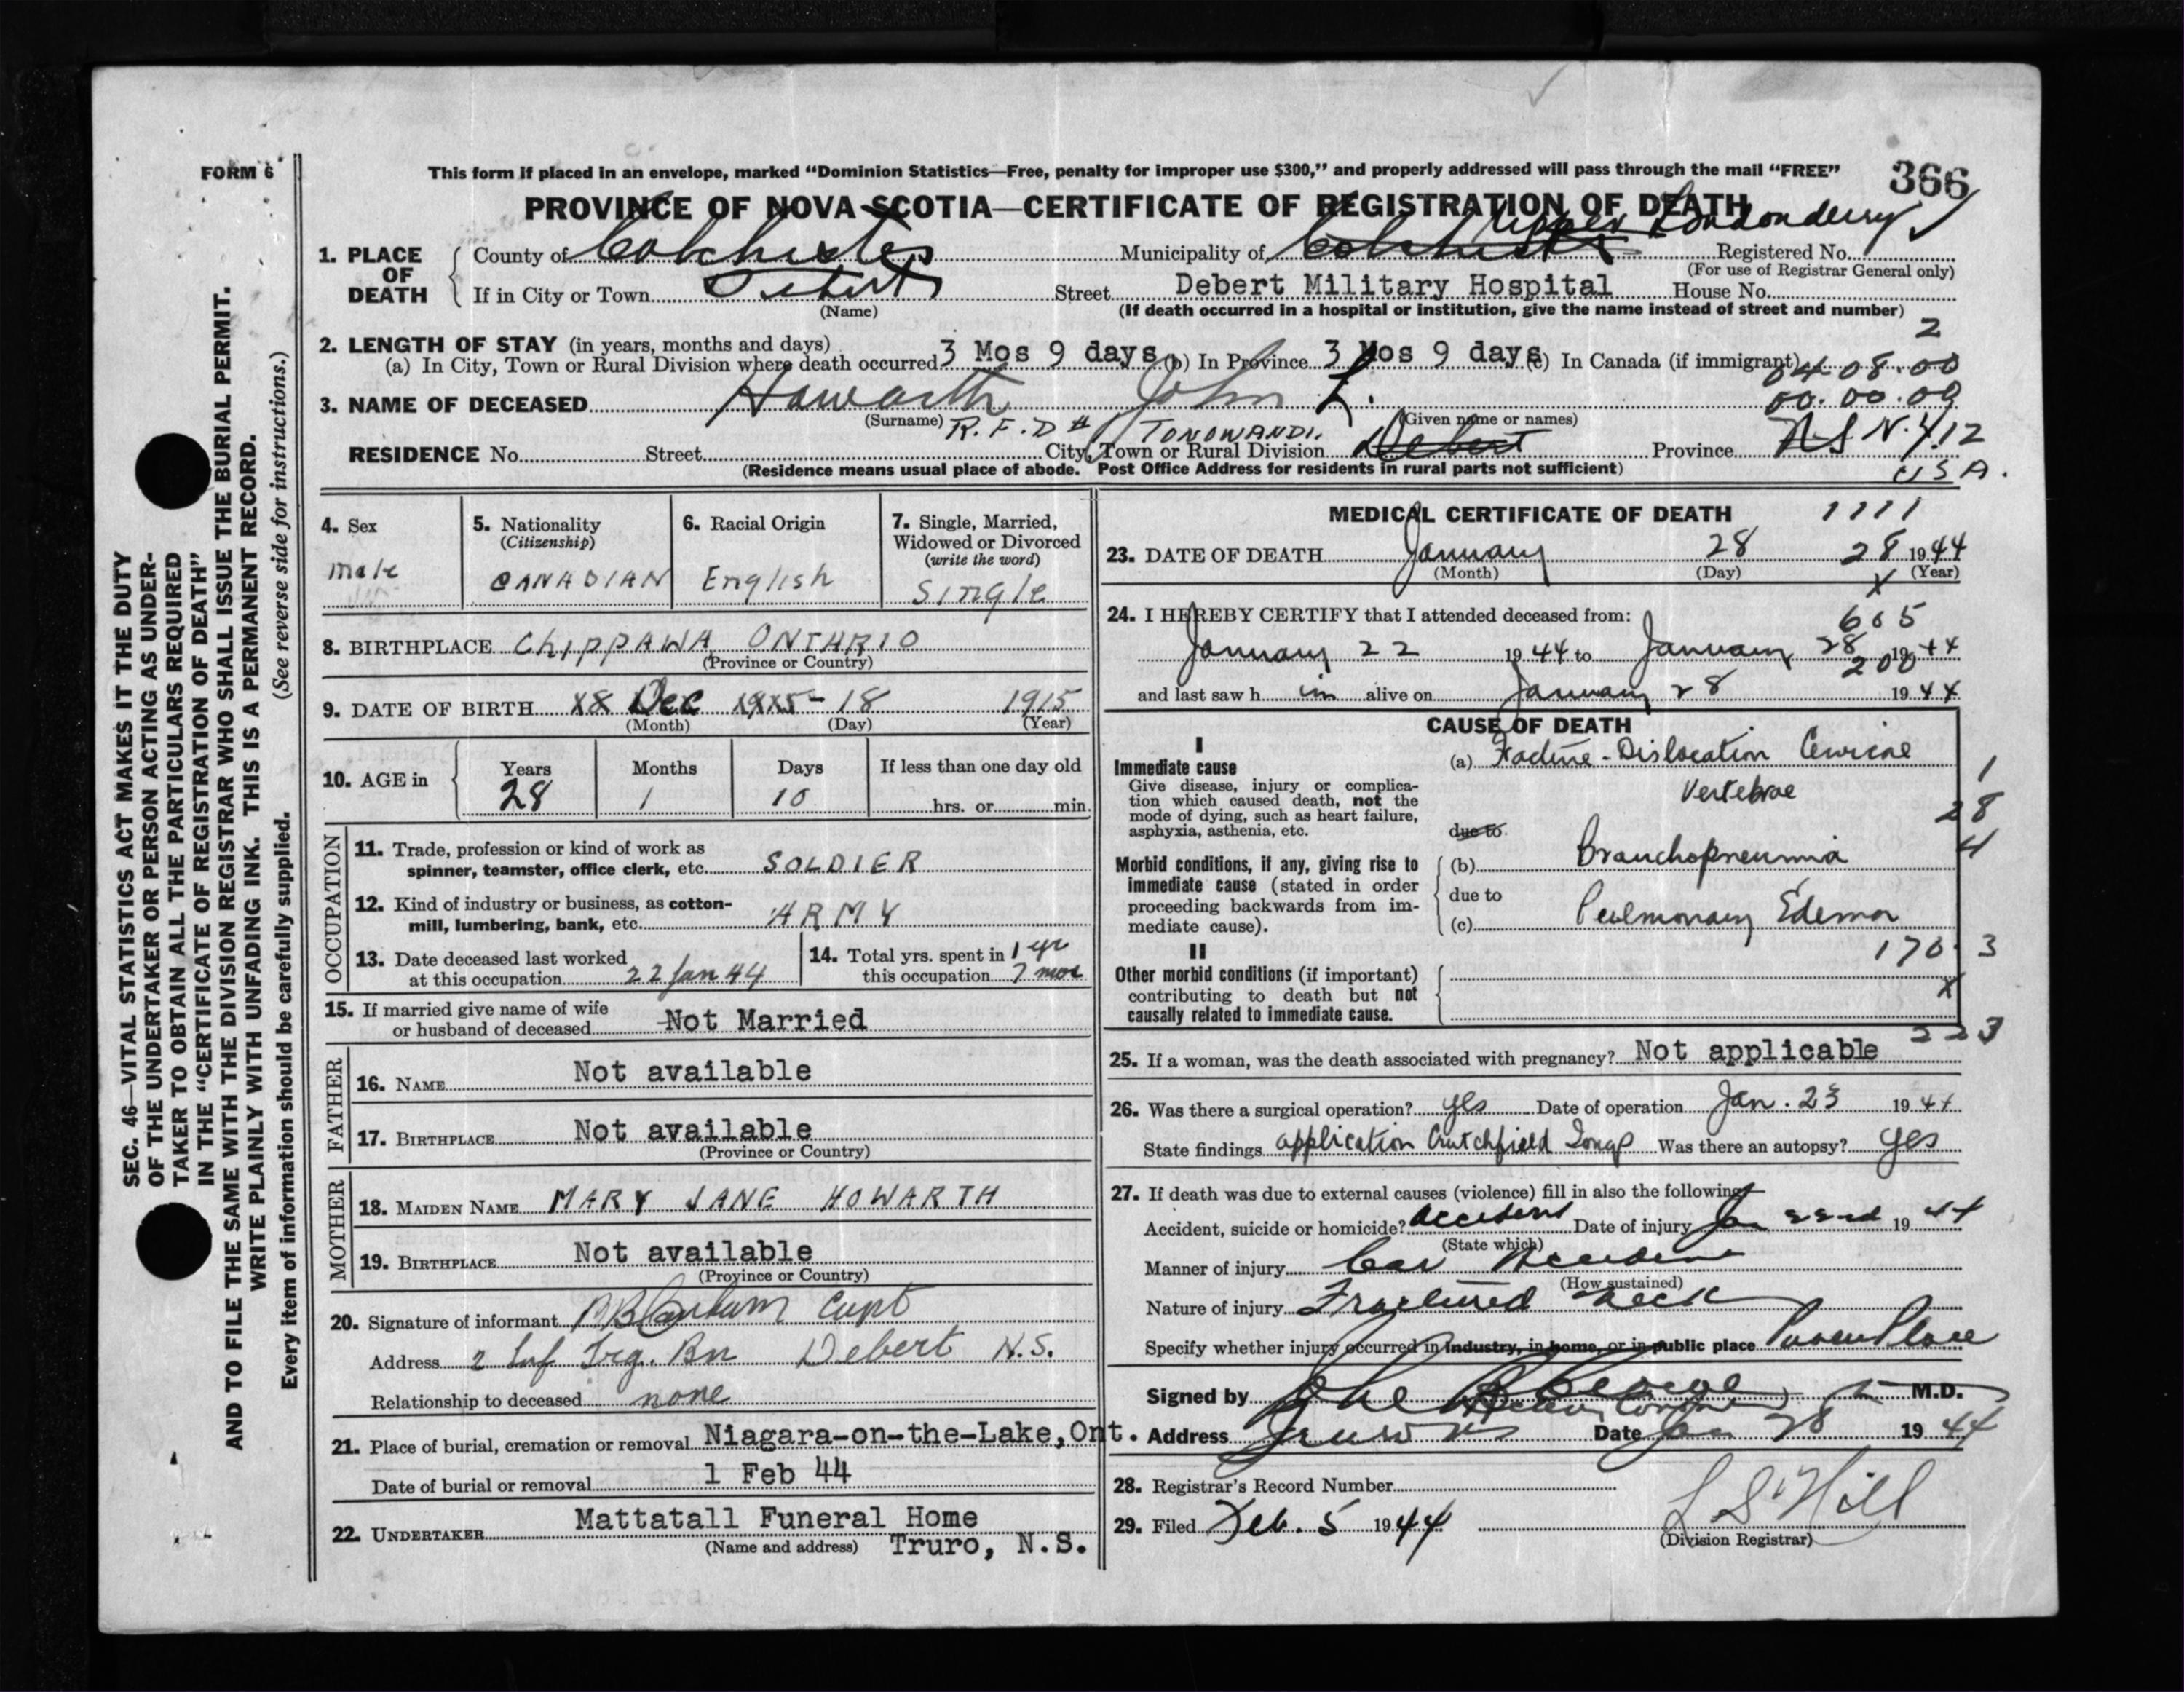 FORM 6
This form if placed in an envelope, marked “Dominion Statistics—Free, penalty for improper use $300,” and properly addressed will pass through the mail “FREE”
366
PROVINCE OF NOVA SCOTIA—CERTIFICATE OF REGISTRATION OF DEATH
Upper Londonderry
1. PLACE OF DEATH
County of Colchester Municipality of Colchester Registered No.
(For use of Registrar General only)
If in City or Town Debert Street Debert Military Hospital House No.
(Name) (If death occurred in a hospital or institution, give the name instead of street and number)
2
2. LENGTH OF STAY (in years, months and days)
(a) In City, Town or Rural Division where death occurred 3 Mos 9 days (b) In Province 3 Mos 9 days (c) In Canada (if immigrant)
04-08.00
00.00.00
3. NAME OF DECEASED Howarth John L.
(Surname) (Given name or names)
R.F.D # 1 TONOWANDI. N.Y. 12
RESIDENCE No. Street City, Town or Rural Division Debert Province NS
(Residence means usual place of abode. Post Office Address for residents in rural parts not sufficient)
USA.
4. Sex
male
5. Nationality
(Citizenship)
CANADIAN
6. Racial Origin
English
7. Single, Married,
Widowed or Divorced
(write the word)
Single
8. BIRTHPLACE CHIPPAWA ONTARIO
(Province or Country)
9. DATE OF BIRTH Dec 18 1915
(Month) (Day) (Year)
10. AGE in
Years Months Days If less than one day old
28 1 10 hrs. or min.
OCCUPATION
11. Trade, profession or kind of work as
spinner, teamster, office clerk, etc. SOLDIER
12. Kind of industry or business, as cotton-
mill, lumbering, bank, etc. ARMY
13. Date deceased last worked
at this occupation 22 Jan 44
14. Total yrs. spent in 1 yr
this occupation 7 mos
15. If married give name of wife
or husband of deceased Not Married
FATHER
16. NAME Not available
17. BIRTHPLACE Not available
(Province or Country)
MOTHER
18. MAIDEN NAME MARY JANE HOWARTH
19. BIRTHPLACE Not available
(Province or Country)
20. Signature of informant Capt
Address 2 Inf Trg. Bn Debert N.S.
Relationship to deceased none
21. Place of burial, cremation or removal Niagara-on-the-Lake, Ont.
Date of burial or removal 1 Feb 44
22. UNDERTAKER Mattatall Funeral Home
(Name and address) Truro, N.S.
MEDICAL CERTIFICATE OF DEATH
1111
23. DATE OF DEATH January 28 28 1944
(Month) (Day) (Year)
X
24. I HEREBY CERTIFY that I attended deceased from:
605
January 22 1944 to January 28 1944
200
and last saw h im alive on January 28 1944
CAUSE OF DEATH
I
Immediate cause
Give disease, injury or complica-
tion which caused death, not the
mode of dying, such as heart failure,
asphyxia, asthenia, etc.
(a) Fracture-Dislocation Cervical
Vertebrae
1
28
4
due to
Morbid conditions, if any, giving rise to
immediate cause (stated in order
proceeding backwards from im-
mediate cause).
(b) Bronchopneumonia
due to
(c) Pulmonary Edema
170 3
II
Other morbid conditions (if important)
contributing to death but not
causally related to immediate cause.
X
223
25. If a woman, was the death associated with pregnancy? Not applicable
26. Was there a surgical operation? yes Date of operation Jan. 23 1944
State findings application Crutchfield Tongs Was there an autopsy? yes
27. If death was due to external causes (violence) fill in also the following
Accident, suicide or homicide? Accident Date of injury Jan 22nd 1944
(State which)
Manner of injury Car Accident
(How sustained)
Nature of injury Fractured Neck
Specify whether injury occurred in industry, in home, or in public place Public Place
Signed by M.D.
Address Truro NS Date Jan 28 1944
28. Registrar's Record Number
29. Filed Feb. 5 1944 L S Hill
(Division Registrar)
SEC. 46—VITAL STATISTICS ACT MAKES IT THE DUTY
OF THE UNDERTAKER OR PERSON ACTING AS UNDER-
TAKER TO OBTAIN ALL THE PARTICULARS REQUIRED
IN THE “CERTIFICATE OF REGISTRATION OF DEATH”
AND TO FILE THE SAME WITH THE DIVISION REGISTRAR WHO SHALL ISSUE THE BURIAL PERMIT.
WRITE PLAINLY WITH UNFADING INK. THIS IS A PERMANENT RECORD.
Every item of information should be carefully supplied. (See reverse side for instructions.)